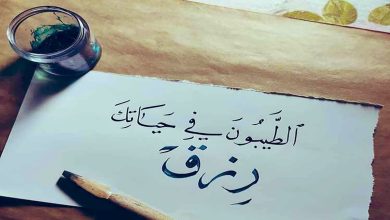 الطَّيِّبُونَ فِي حَيَاتِكَ
رِزق